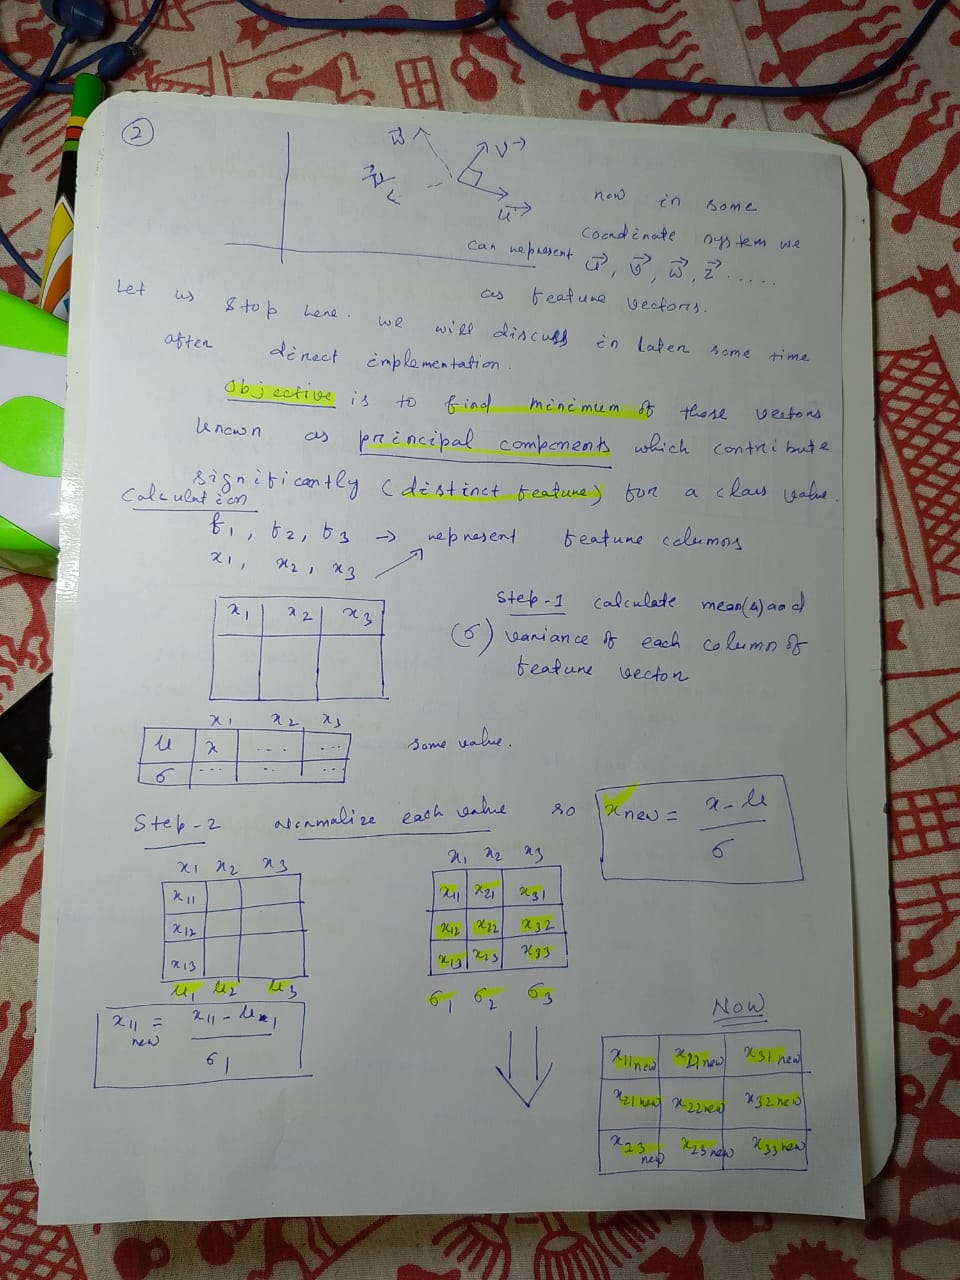 2
w⃗ v⃗
z⃗
u⃗
now in some
coordinate system we
can represent u⃗, v⃗, w⃗, z⃗ .....
as feature vectors.
Let us stop here. we will discuss in later some time
after direct implementation.
objective is to find minimum of these vectors
known as principal components which contribute
significantly (distinct feature) for a class value.
Calculation
f1, f2, f3 → represent feature columns
x1, x2, x3
x1 x2 x3
Step-1 calculate mean(μ) and
(σ) variance of each column of
feature vector
x1 x2 x3
μ x .... ...
σ ... .. ...
some value.
Step-2 normalize each value so
x new = x - μ / σ
x1 x2 x3
x11
x12
x13
μ1 μ2 μ3
x1 x2 x3
x11 x21 x31
x12 x22 x32
x13 x23 x33
σ1 σ2 σ3
x11 new = x11 - μ1 / σ1
NOW
x11new x21new x31new
x21new x22new x32new
x23new x23new x33new